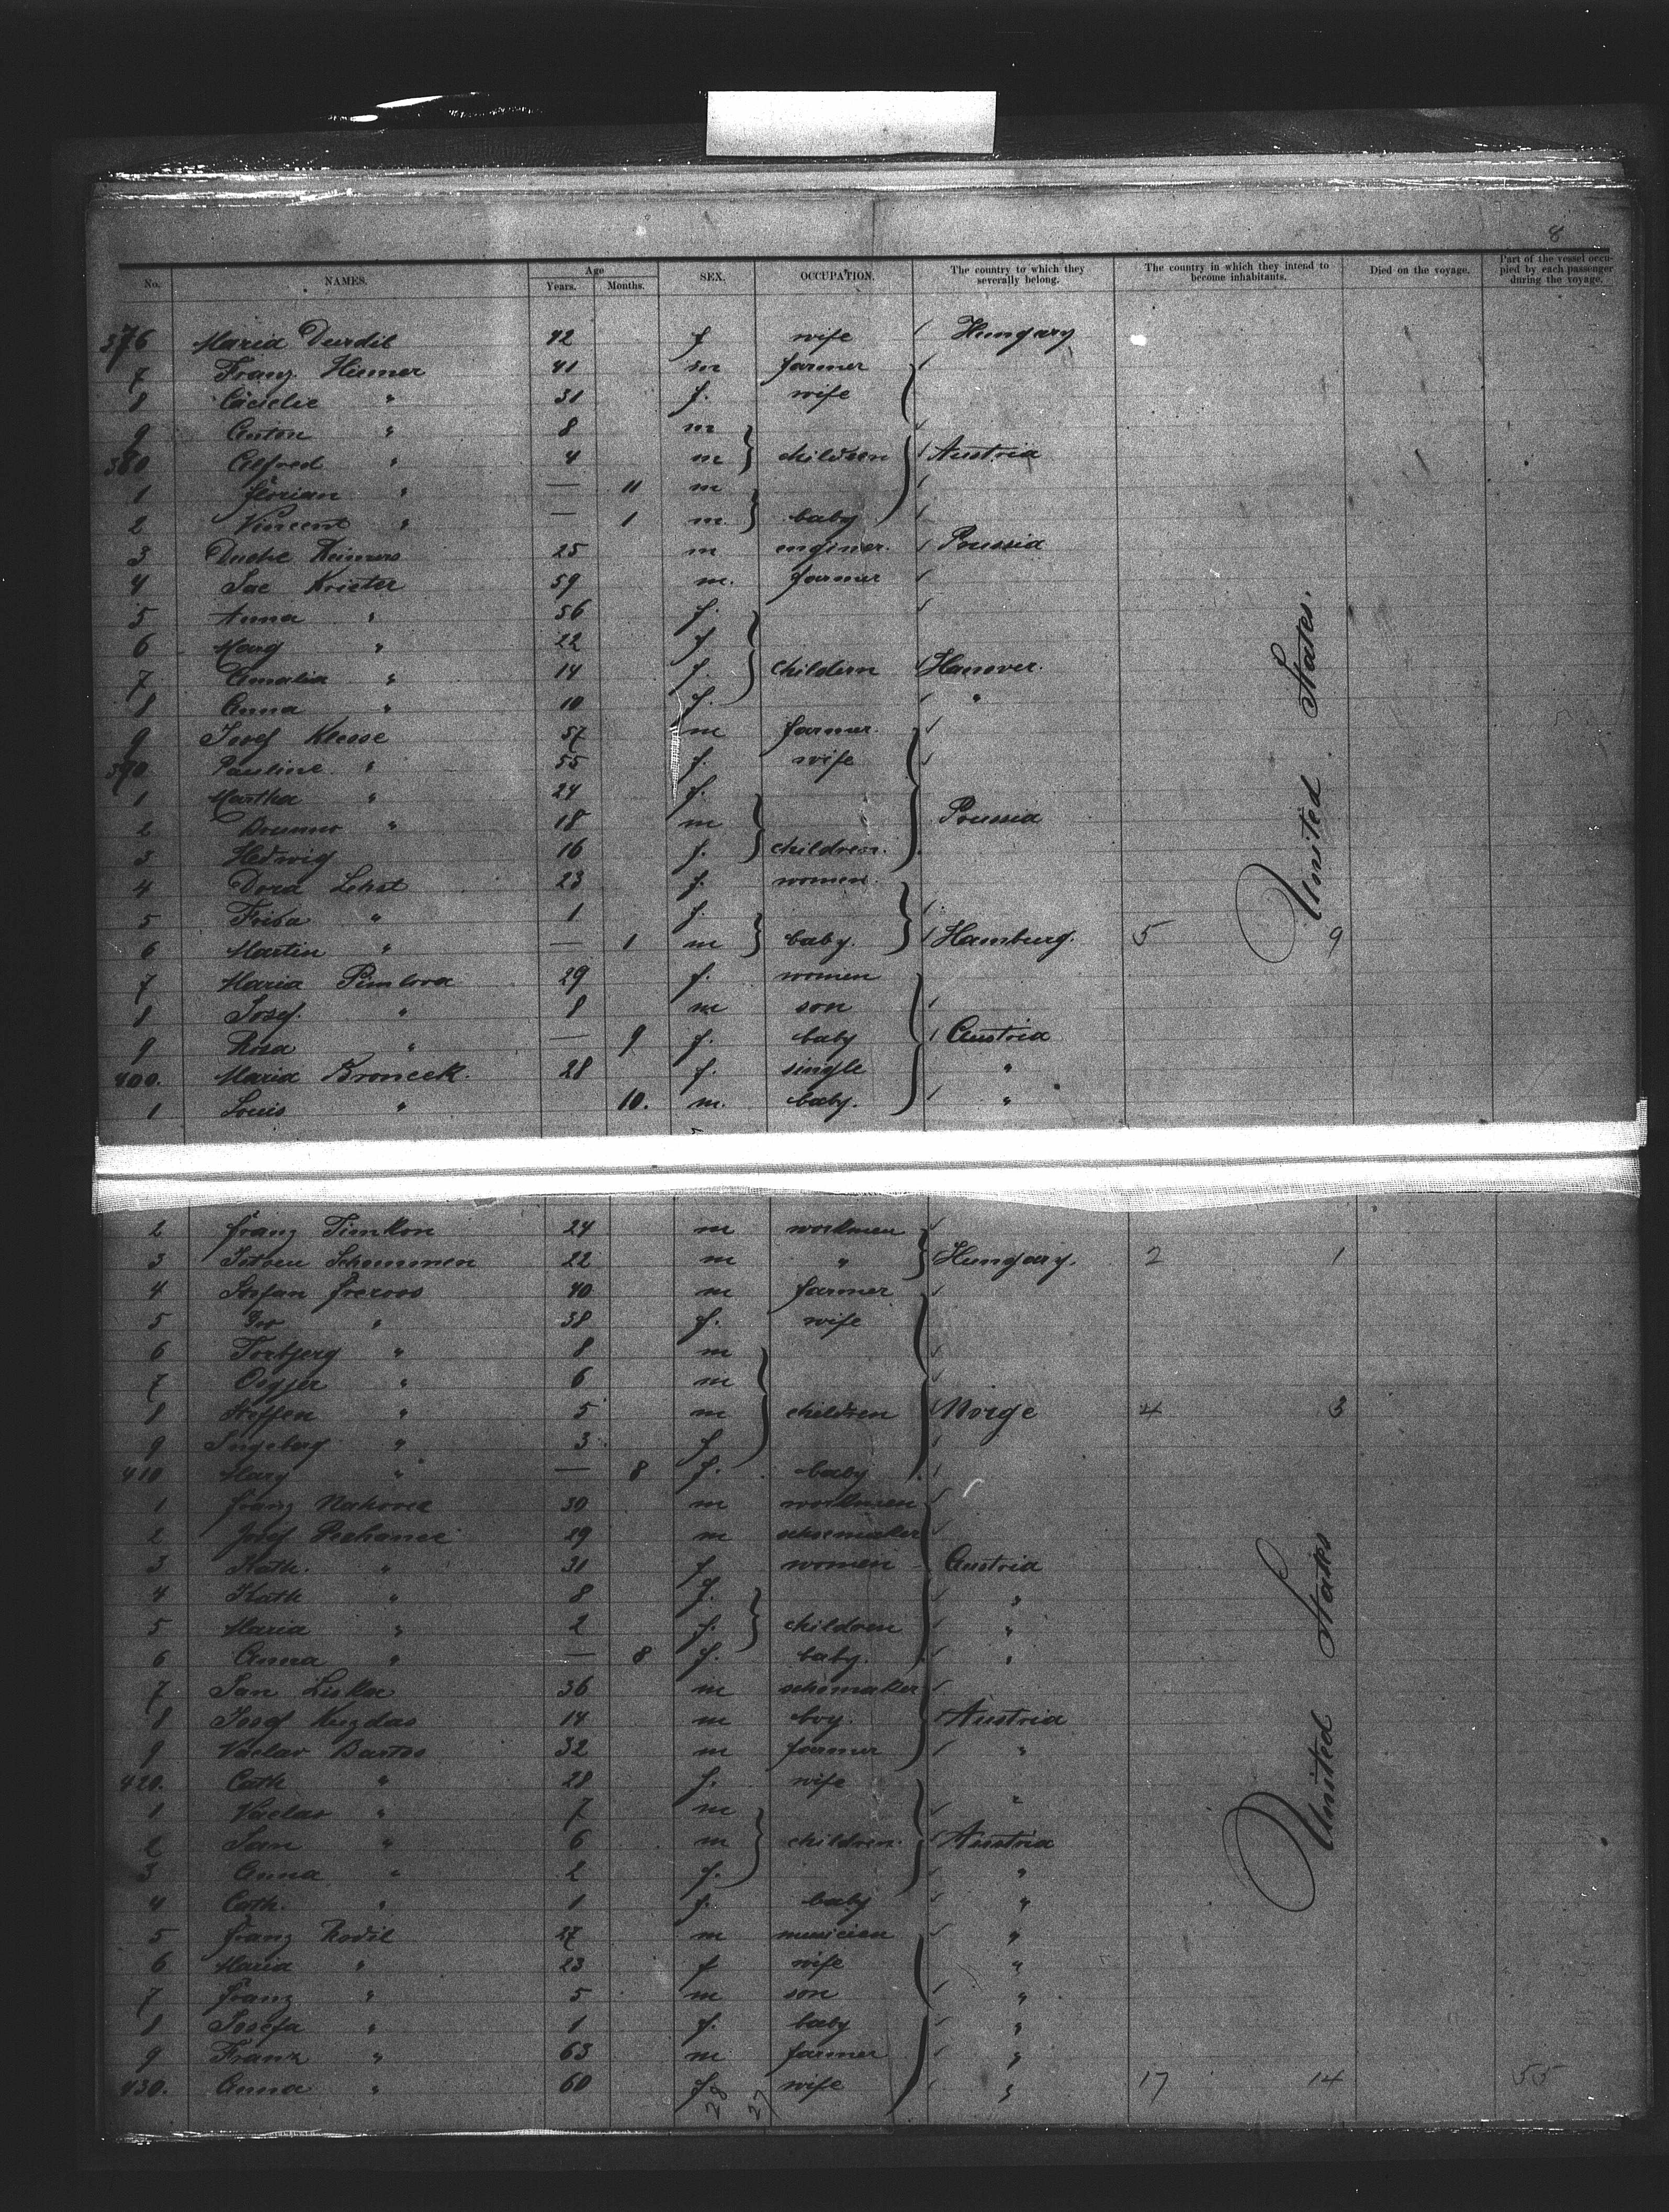 8
No. NAMES. Age Years. Months. SEX. OCCUPATION. The country to which they severally belong. The country in which they intend to become inhabitants. Died on the voyage. Part of the vessel occupied by each passenger during the voyage.
376 Maria Durdil 42 f wife Hungary
7 Franz Hiemer 41 m farmer
8 Cäcielie " 31 f. wife
9 Anton " 8 m
380 Alfred " 4 m children Austria
1 Florian " — 11 m
2 Vincent " — 1 m. baby
3 Reimers 25 m enginer. Prussia
4 Jac Krieter 59 m. farmer
5 Anna " 56 f.
6 Marg " 22 f
7 Amalia " 14 f. childern Hanover.
8 Anna " 10 f. "
9 Josef Klesse 57 m farmer.
390 Pauline " 55 f. wife
1 Martha " 24 f.
2 Brunno " 18 m Prussia
3 Hedwig 16 f. children.
4 Dora Lehst 23 f. women.
5 Frida " 1 f.
6 Martin " — 1 m baby. Hamburg. 5 9
7 Maria Pimlova 29 f. women
8 Josef. " 8 m son
9 Rosa " — 9 f. baby Austria
400. Maria Bronceck. 28 f. single "
1 Louis " 10. m. baby. "
United States.
2 Franz Timkon 24 m workmen
3 Schemmen 22 m " Hungary. 2 1
4 Stefan 40 m farmer
5 " 38 f. wife
6 Torbjerg " 8 m
7 " 6 m
8 Steffen " 5 m children Norge 4 3
9 Ingeberg " 3 f
410 Mary " — 8 f. baby
1 Franz 30 m workmen
2 Josef 29 m schoemaker
3 Kath. " 31 f women Austria
4 Kath " 8 f. "
5 Maria " 2 f. children "
6 Anna " — 8 f. baby. "
7 Jan Liska 36 m schomaker
8 Josef Kuzdas 14 m boy. Austria
9 Vaclav Bartos 32 m farmer "
420. Cath " 28 f. wife
1 Vaclav " 7 m "
2 Jan " 6 m children. Austria
3 Anna " 2 f. "
4 Cath. " 1 f. baby "
5 Franz Rodil 27 m musician "
6 Maria " 23 f wife "
7 Franz " 5 m son "
8 Josefa " 1 f. baby "
9 Franz " 63 m farmer "
430. Anna " 60 f wife " 17 14 55
United States
28 27